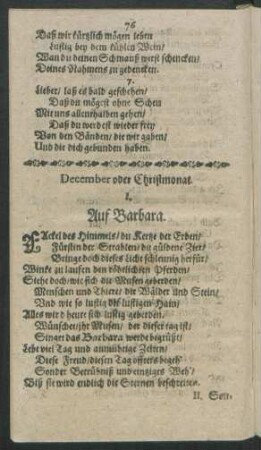 76
Daß wir kürtzlich mögen leben
Lustig bey dem kühlen Wein/
Wan du deinen Schmauß wirst schencken/
Deines Nahmens zu gedencken.
7.
Lieber/ laß es bald geschehen/
Daß du mögest ohne Sehen
Mit uns allenthalben gehen/
Daß du werdest wieder frey/
Von den Bänden/ die wir gaben/
Und die dich gebunden haben.
December oder Christmonat.
I.
Auf Barbara.
FAckel des Himmels/ du Kertze der Erden/
Fürstin der Strahlen/ du güldene Zier/
Bringe doch dieses Licht schleunig herfür/
Winke zu laufen den röhtlichen Pferden/
Siehe doch/ wie sich die Musen geberden/
Menschen und Thiere die Wälder und Stein/
Und wie so lustig die lustigen Hain/
Alles wird heute sich lustig geberden.
Wünschet/ ihr Musen/ der dieser tag ist/
Singet das Barbara werde begrüßt/
Lebe viel Tag und anmühtige Zeiten/
Diese Freud/ diesen Tag öfters begeh'
Sonder Betrübniß und eintziges Weh'/
Biß sie wird endlich die Sternen beschreiten.
II. Son-